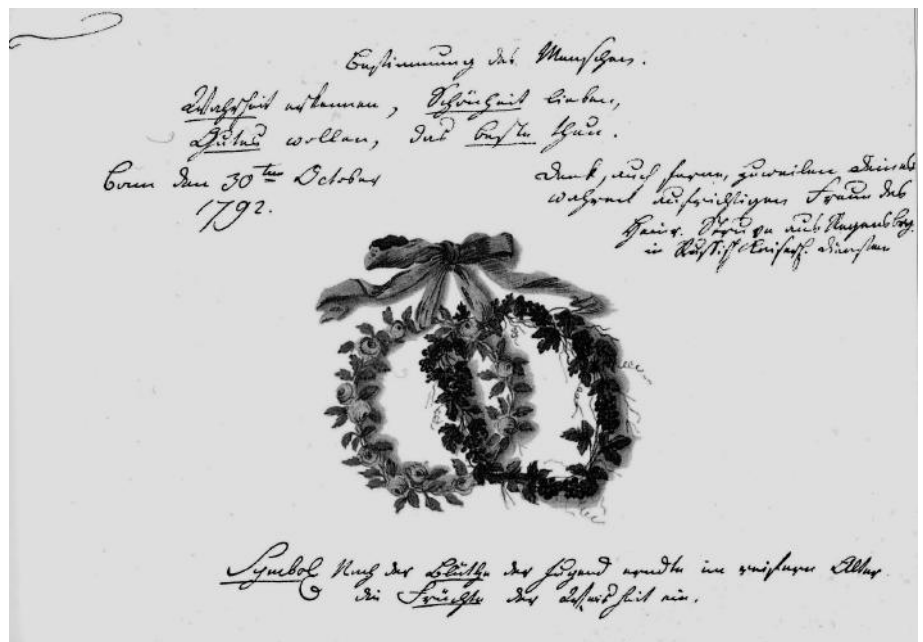 Bestimmung des Menschen.
Wahrheit erkennen, Schönheit lieben,
Gutes wollen, das beste thun.
Bonn den 30ten October
1792.
Denk, auch ferne, zuweilen Deines
wahren aufrichtigen Freundes
Heinr. Struve aus Regensbrg.
in Russisch Kaiserl. Diensten
Symbol Nach der Blüthe der Jugend erndte im reifern Alter
die Früchte der Weisheit ein.